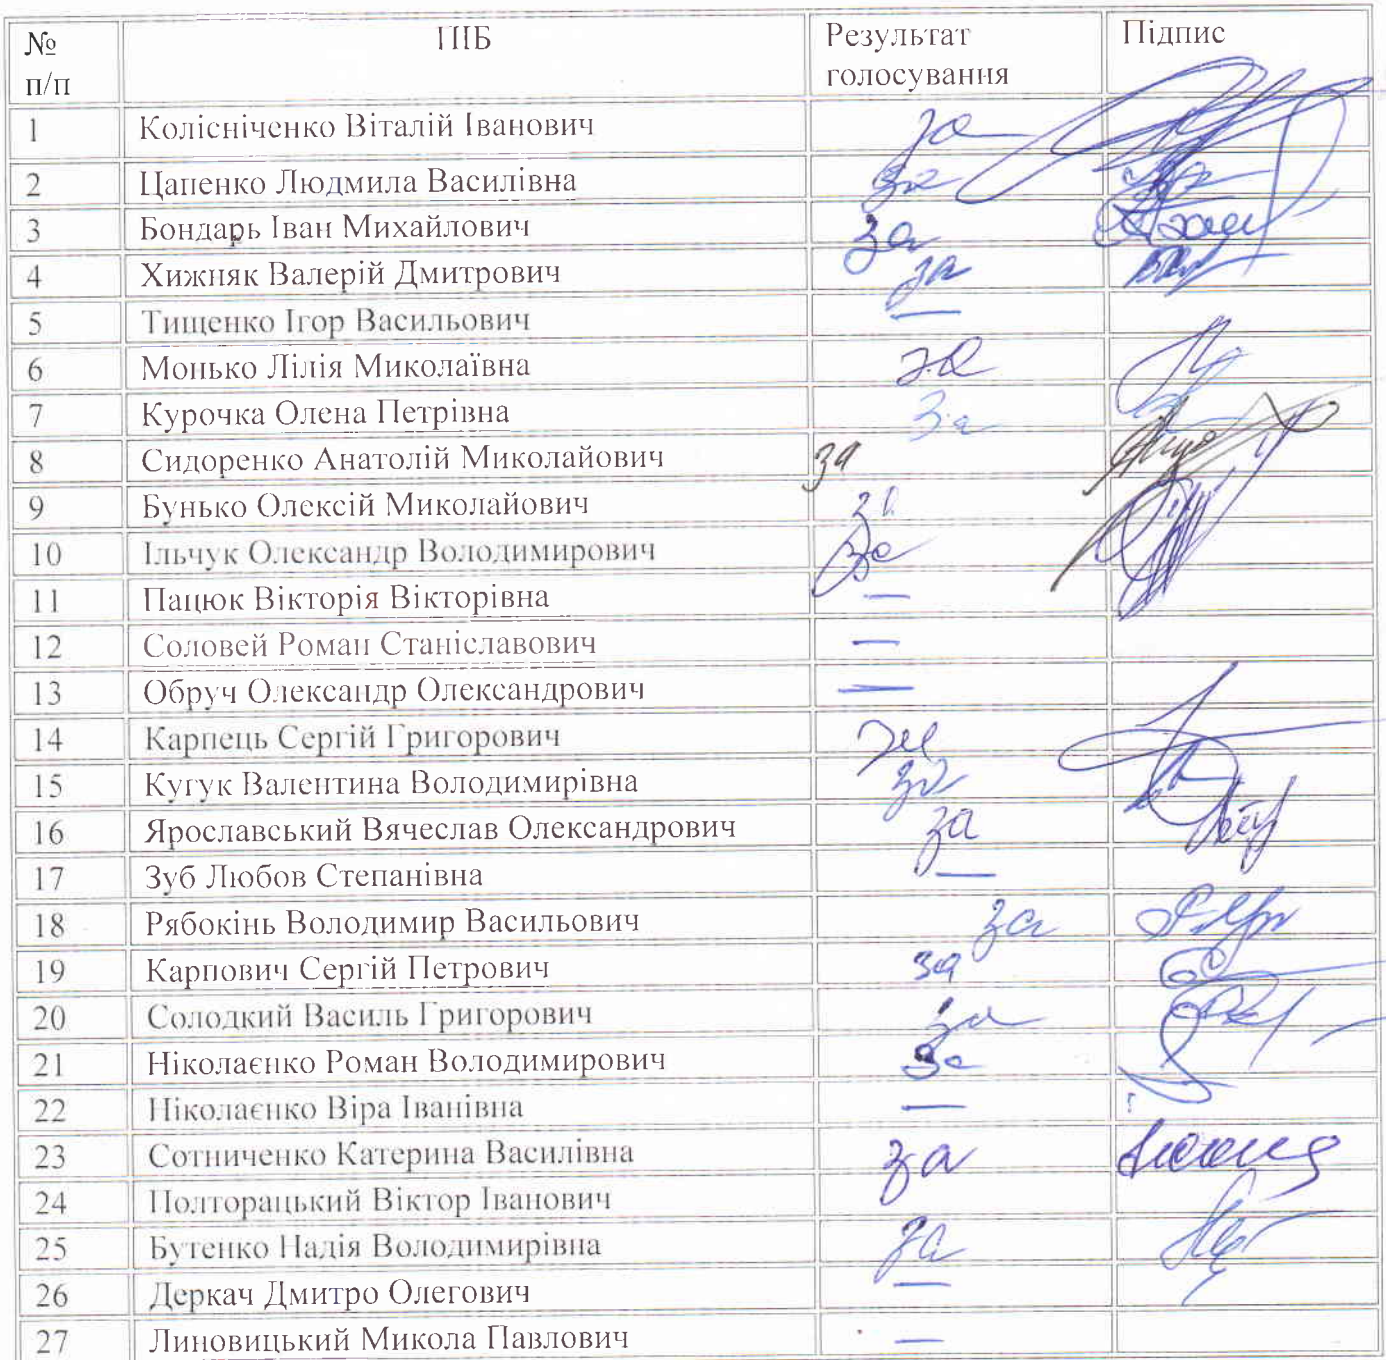 № п/п ПІБ Результат голосування Підпис
1 Колісніченко Віталій Іванович за
2 Цапенко Людмила Василівна за
3 Бондарь Іван Михайлович за
4 Хижняк Валерій Дмитрович за
5 Тищенко Ігор Васильович —
6 Монько Лілія Миколаївна за
7 Курочка Олена Петрівна за
8 Сидоренко Анатолій Миколайович за
9 Бунько Олексій Миколайович за
10 Ільчук Олександр Володимирович за
11 Пацюк Вікторія Вікторівна —
12 Соловей Роман Станіславович —
13 Обруч Олександр Олександрович —
14 Карпець Сергій Григорович за
15 Кугук Валентина Володимирівна за
16 Ярославський Вячеслав Олександрович за
17 Зуб Любов Степанівна —
18 Рябокінь Володимир Васильович за
19 Карпович Сергій Петрович за
20 Солодкий Василь Григорович за
21 Ніколаєнко Роман Володимирович за
22 Ніколаєнко Віра Іванівна —
23 Сотниченко Катерина Василівна за
24 Полторацький Віктор Іванович
25 Бутенко Надія Володимирівна за
26 Деркач Дмитро Олегович —
27 Линовицький Микола Павлович —